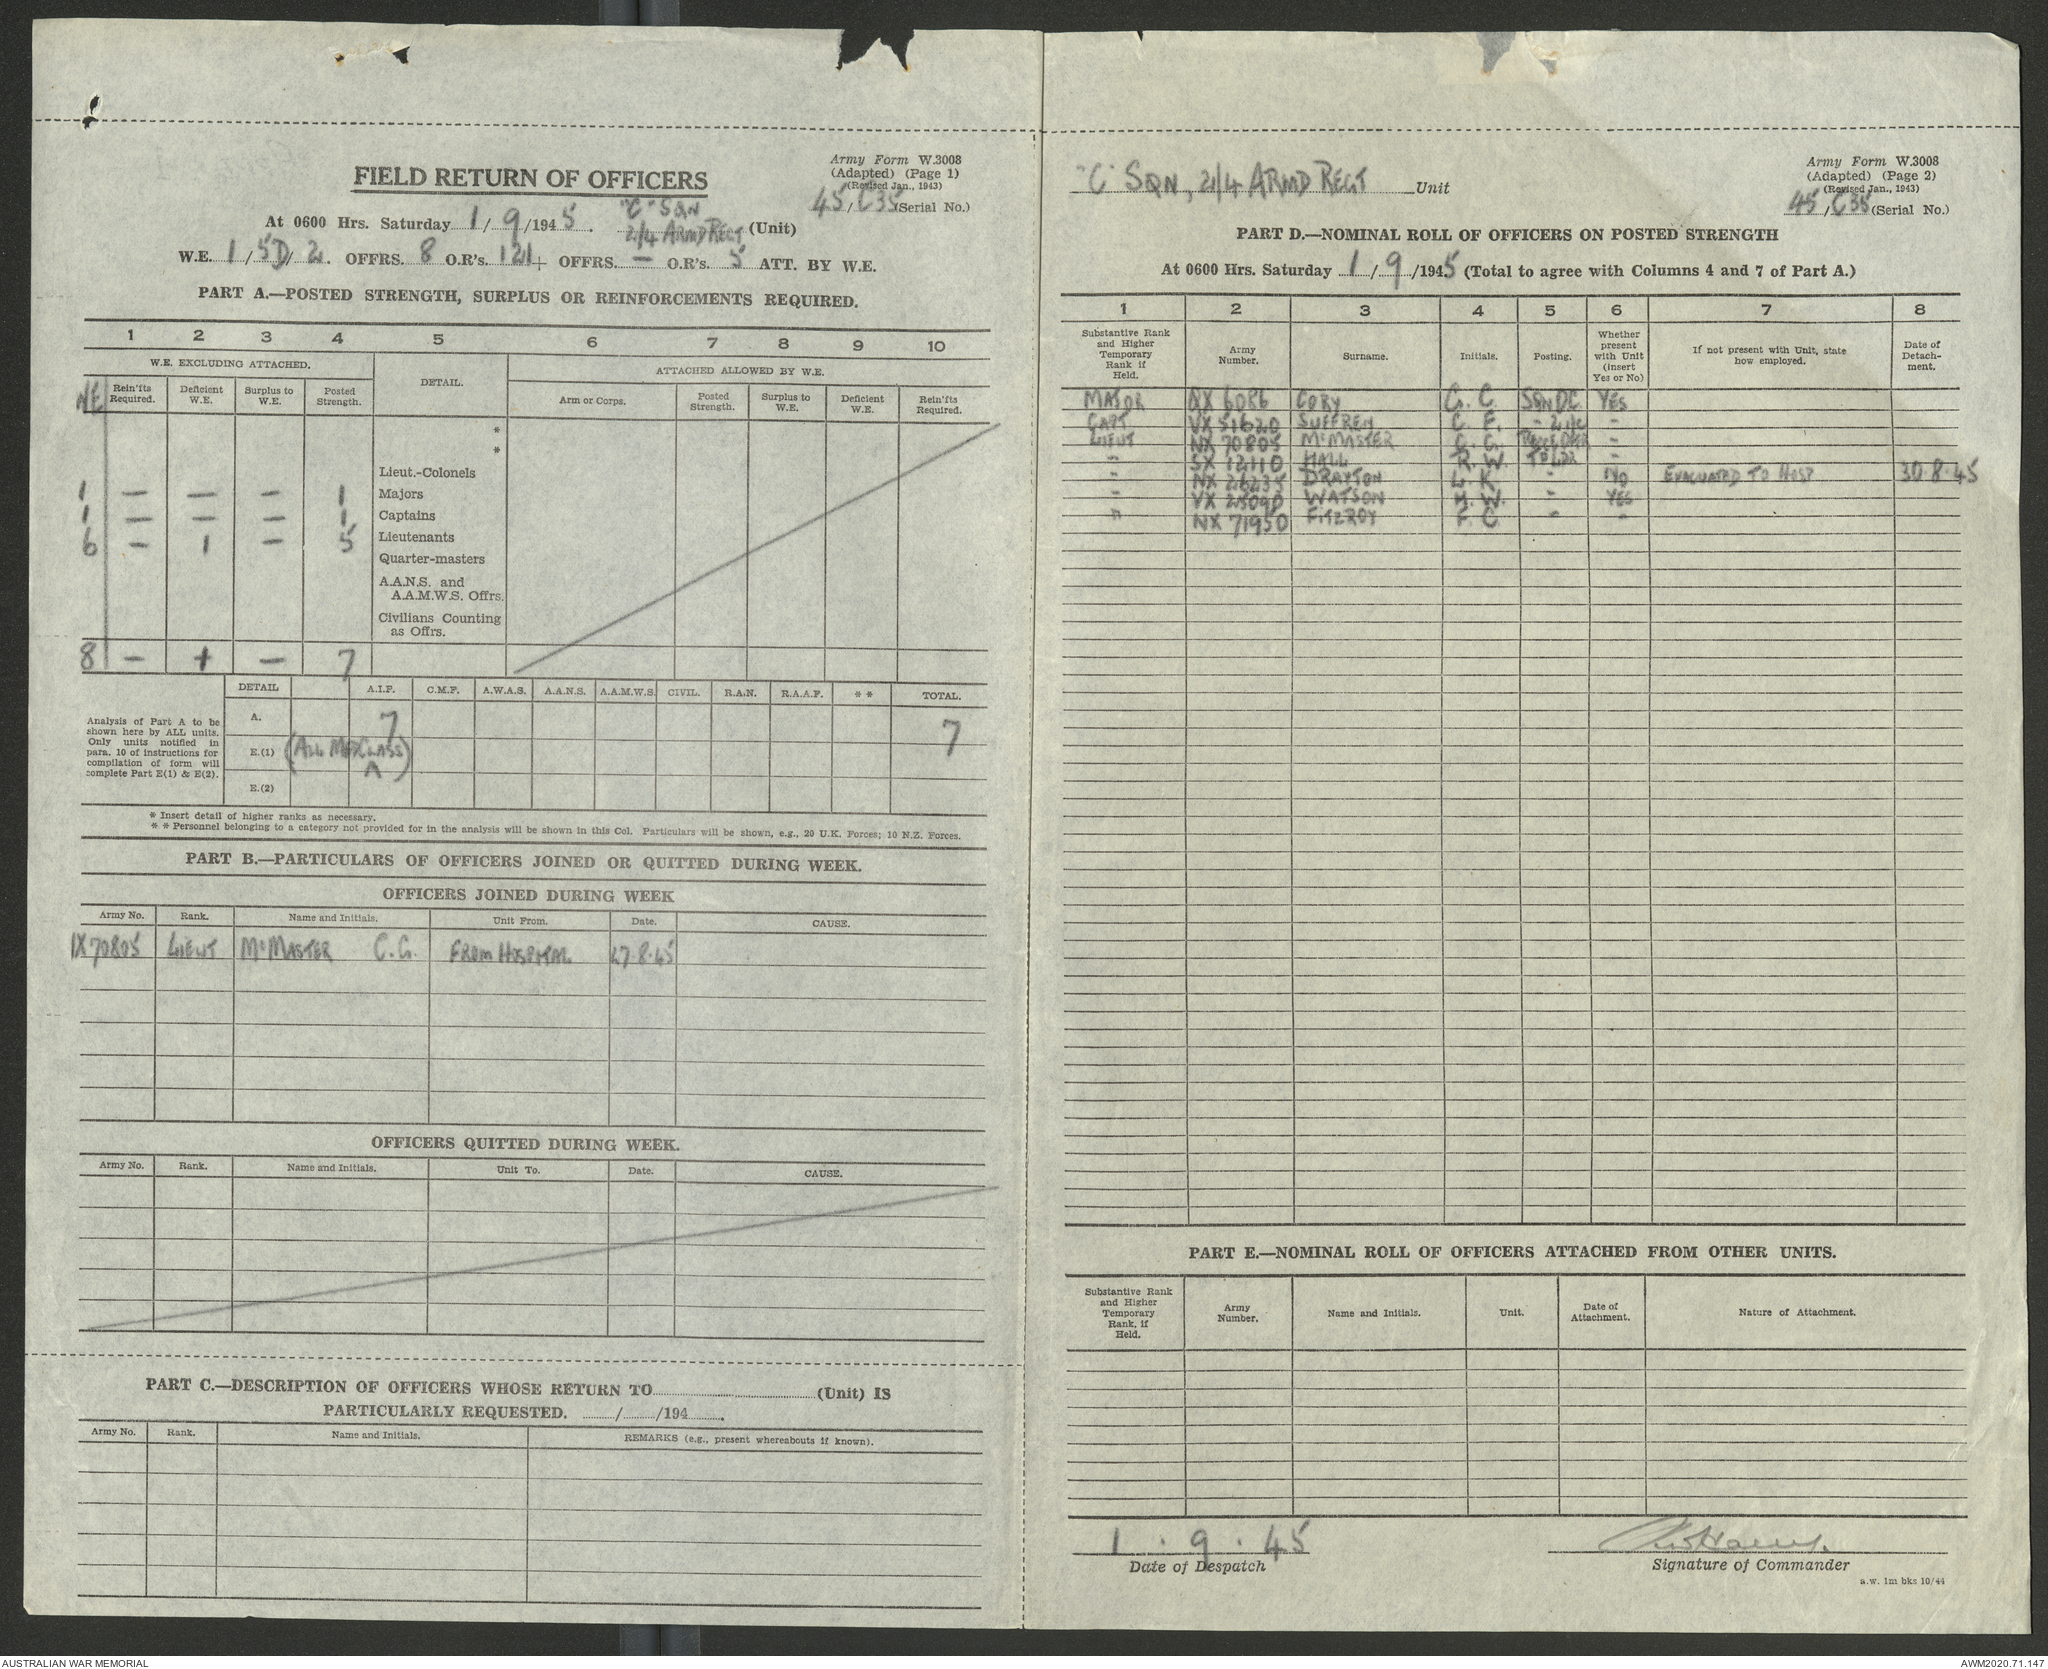 Army Form W.3008
(Adapted) (Page 1)
(Revised Jan., 1943)
45/C35 (Serial No.)
FIELD RETURN OF OFFICERS
At 0600 Hrs. Saturday 1/9/1945. "C" SQN
2/4 ARMD REGT (Unit)
W.E. 1/5D/2. OFFRS. 8 O.R's. 121 + OFFRS. — O.R's. 5 ATT. BY W.E.
PART A.—POSTED STRENGTH, SURPLUS OR REINFORCEMENTS REQUIRED.
1 2 3 4 5 6 7 8 9 10
W.E. EXCLUDING ATTACHED. DETAIL. ATTACHED ALLOWED BY W.E.
WE Rein'fts Required. Deficient W.E. Surplus to W.E. Posted Strength. Arm or Corps. Posted Strength. Surplus to W.E. Deficient W.E. Rein'fts Required.
*
*
Lieut.-Colonels
1 — — — 1 Majors
1 — — — 1 Captains
6 — 1 — 5 Lieutenants
Quarter-masters
A.A.N.S. and
A.A.M.W.S. Offrs.
Civilians Counting
as Offrs.
8 — 1 — 7
DETAIL A.I.F. C.M.F. A.W.A.S. A.A.N.S. A.A.M.W.S. CIVIL. R.A.N. R.A.A.F. * * TOTAL.
Analysis of Part A to be
shown here by ALL units.
Only units notified in
para. 10 of instructions for
compilation of form will
complete Part E(1) & E(2).
A. 7 7
E.(1) (ALL MED CLASS
A)
E.(2)
* Insert detail of higher ranks as necessary.
* * Personnel belonging to a category not provided for in the analysis will be shown in this Col. Particulars will be shown, e.g., 20 U.K. Forces; 10 N.Z. Forces.
PART B.—PARTICULARS OF OFFICERS JOINED OR QUITTED DURING WEEK.
OFFICERS JOINED DURING WEEK
Army No. Rank. Name and Initials. Unit From. Date. CAUSE.
X70805 LIEUT McMASTER C.G. FROM HOSPITAL 27.8.45
OFFICERS QUITTED DURING WEEK.
Army No. Rank. Name and Initials. Unit To. Date. CAUSE.
PART C.—DESCRIPTION OF OFFICERS WHOSE RETURN TO (Unit) IS
PARTICULARLY REQUESTED. / /194 .
Army No. Rank. Name and Initials. REMARKS (e.g., present whereabouts if known).
"C" SQN, 2/4 ARMD REGT Unit
Army Form W.3008
(Adapted) (Page 2)
(Revised Jan., 1943)
45/C35 (Serial No.)
PART D.—NOMINAL ROLL OF OFFICERS ON POSTED STRENGTH
At 0600 Hrs. Saturday 1/9/1945 (Total to agree with Columns 4 and 7 of Part A.)
1 2 3 4 5 6 7 8
Substantive Rank and Higher Temporary Rank if Held. Army Number. Surname. Initials. Posting. Whether present with Unit (insert Yes or No) If not present with Unit, state how employed. Date of Detachment.
MAJOR NX 6086 CORY G. C. SQN OC YES
CAPT VX 51620 SUFFREN C. F. " 2I/C "
LIEUT NX 70805 McMASTER C. G. "
" SX 12110 HALL R. W. TP LDR "
" NX 26235 DRAYTON L. K. " NO EVACUATED TO HOSP 30.8.45
" VX 25090 WATSON H. W. " YES
" NX 71950 FITZROY F. C. " "
PART E.—NOMINAL ROLL OF OFFICERS ATTACHED FROM OTHER UNITS.
Substantive Rank and Higher Temporary Rank, if Held. Army Number. Name and Initials. Unit. Date of Attachment. Nature of Attachment.
1 . 9 . 45
Date of Despatch
Signature of Commander
a.w. 1m bks 10/44
AUSTRALIAN WAR MEMORIAL
AWM2020.71.147